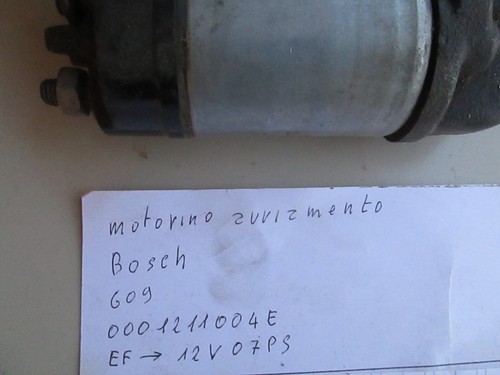 motorino avviamento
Bosch
609
0001211004E
EF → 12V 07PS